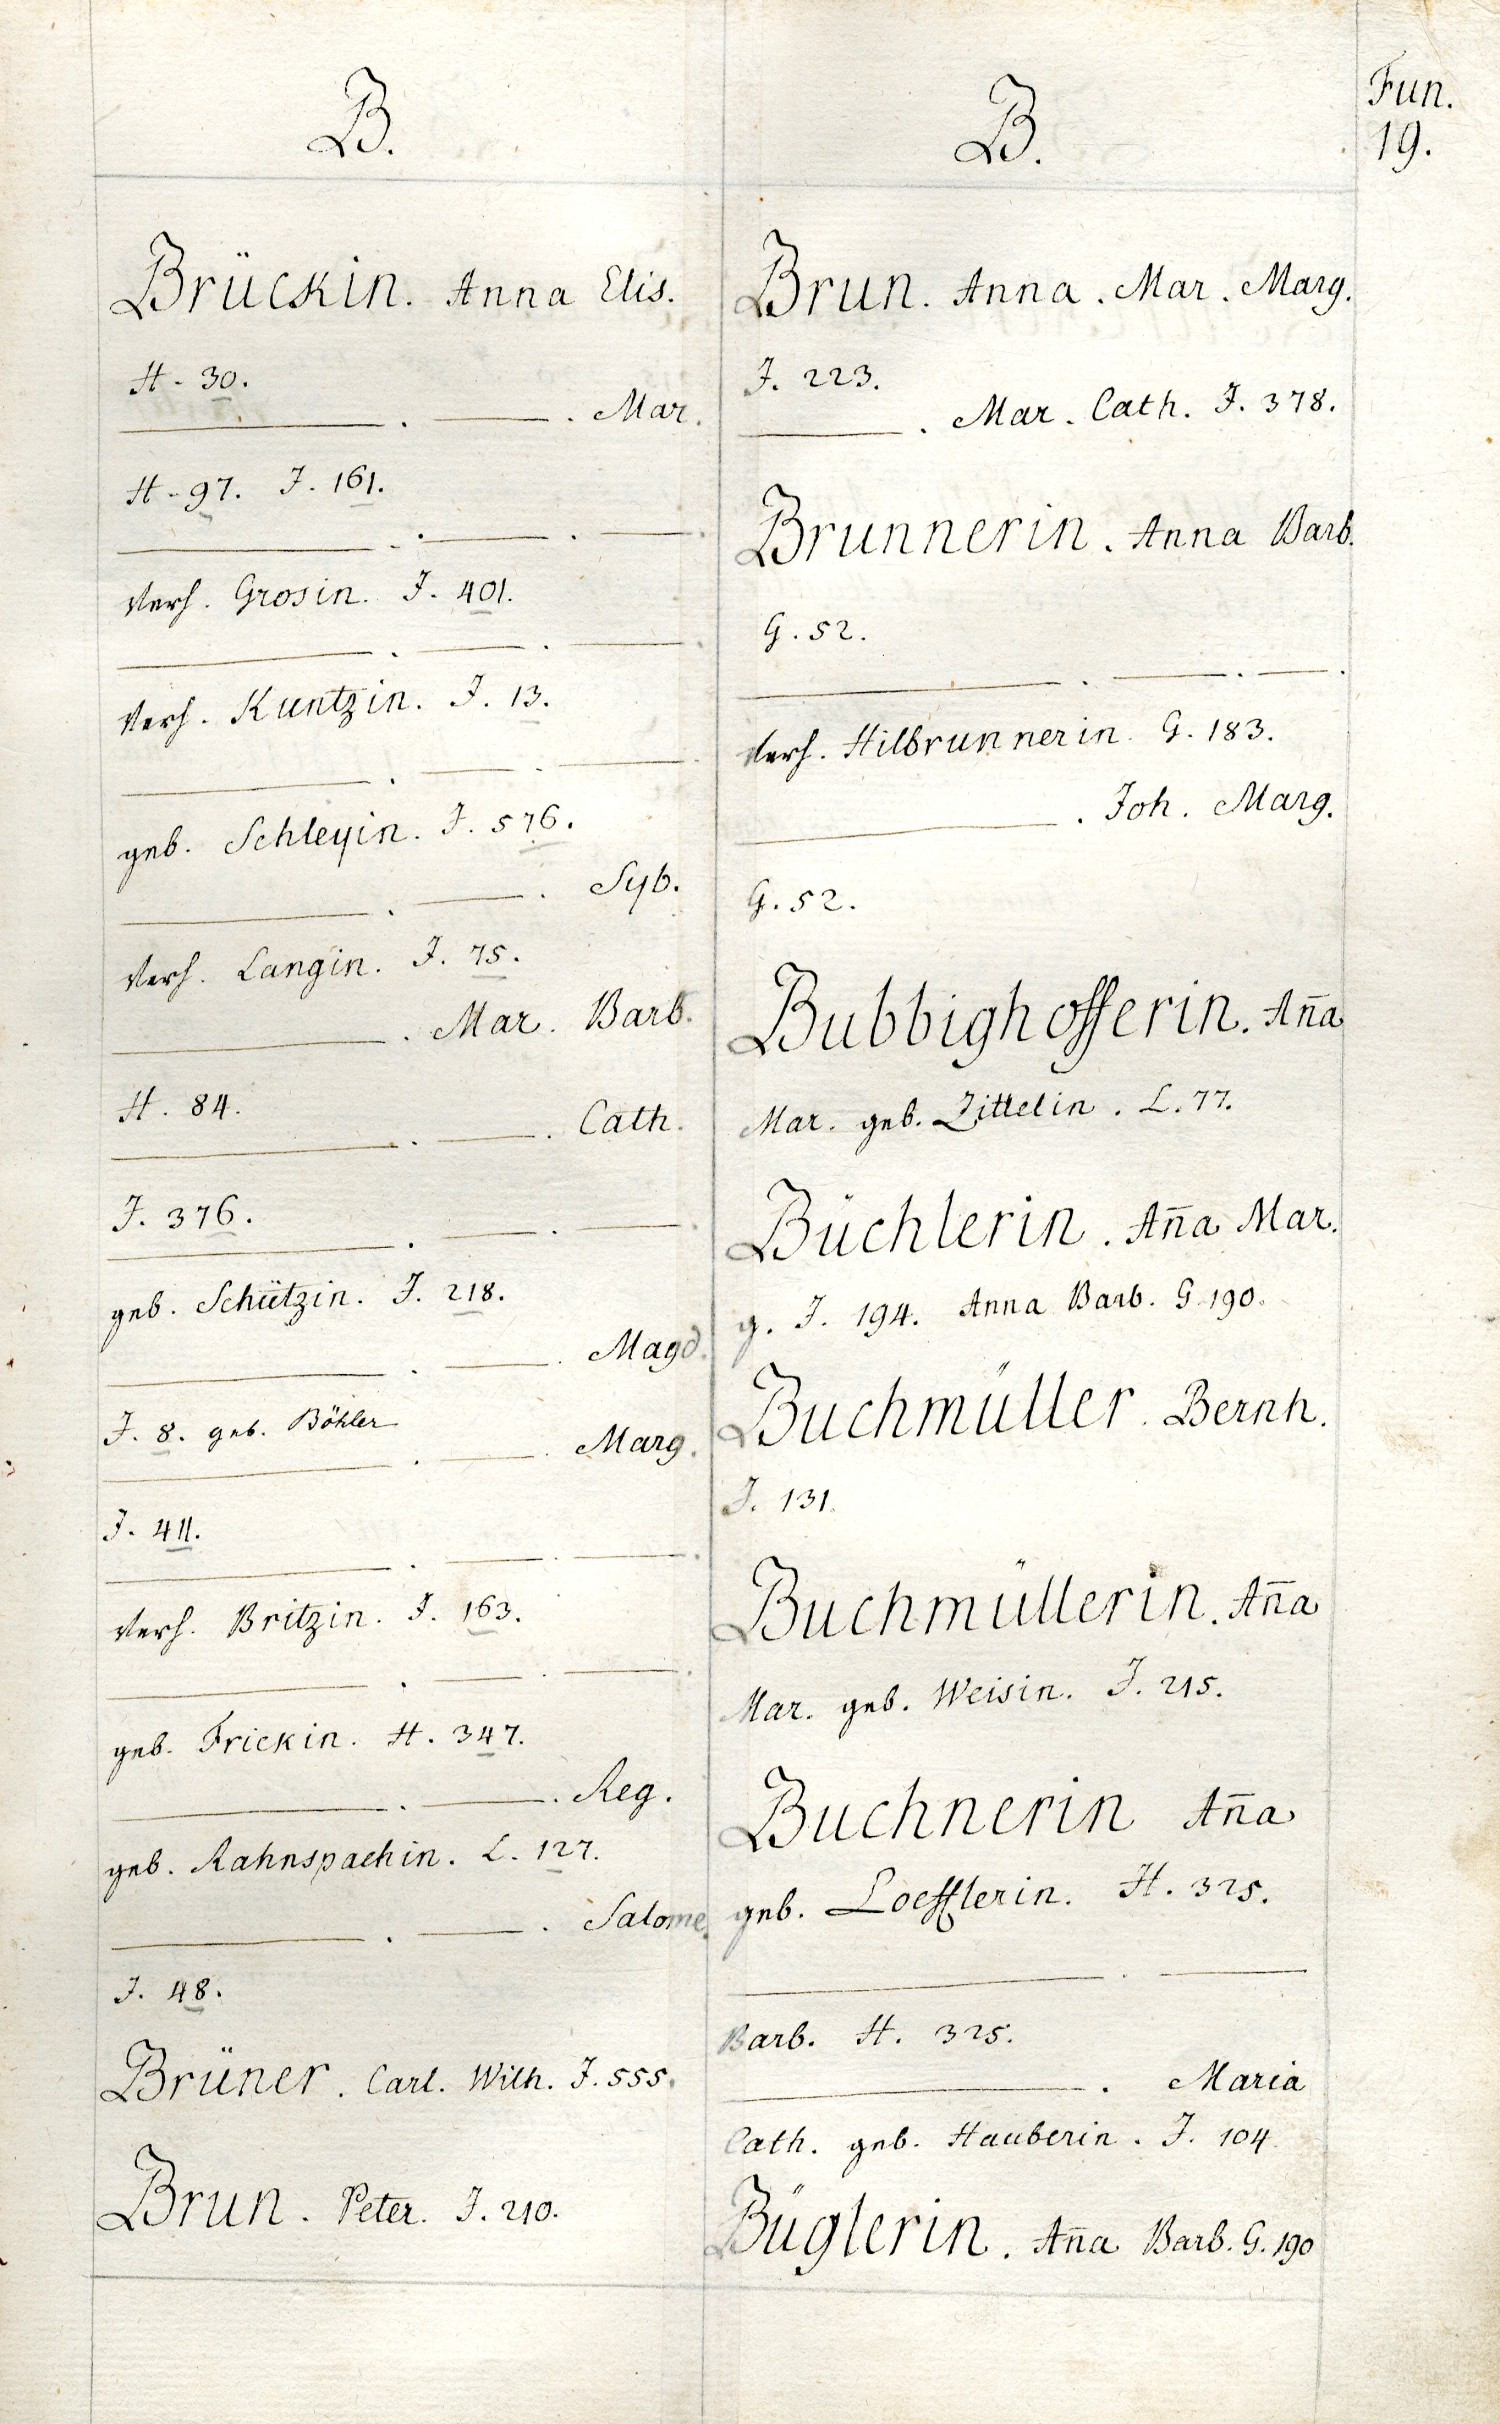 B.
Brückin. Anna Elis.
H. 30.
——— . ——— . Mar.
H. 97. J. 161.
——— . ——— . ———.
verh. Grosin. J. 401.
——— . ——— . ———.
verh. Kuntzin. J. 13.
——— . ——— . ———.
geb. Schleyin. J. 576.
——— . ——— . Syb.
verh. Langin. J. 75.
——— . Mar. Barb.
H. 84.
——— . ——— . Cath.
J. 376.
——— . ——— . ———.
geb. Schützin. J. 218.
——— . ——— . Magd.
J. 8. geb. Böhler
——— . ——— . Marg.
J. 411.
——— . ——— . ———.
verh. Britzin. J. 163.
——— . ——— . ———.
geb. Frickin. H. 347.
——— . ——— . Reg.
geb. Rahnspachin. L. 127.
——— . ——— . Salome.
J. 48.
Brüner. Carl. Wilh. J. 555.
Brun. Peter. J. 210.
B.
Brun. Anna. Mar. Marg.
J. 223.
——— . Mar. Cath. J. 378.
Brunnerin. Anna Barb.
G. 52.
——— . ——— . ———.
verh. Hilbrunnerin. G. 183.
——— . Joh. Marg.
G. 52.
Bubbighofferin. Aña
Mar. geb. Zittelin. L. 77.
Büchlerin. Aña Mar.
g. J. 194. Anna Barb. G. 190.
Buchmüller. Bernh.
J. 131.
Buchmüllerin. Aña
Mar. geb. Weisin. J. 215.
Buchnerin Aña
geb. Loefflerin. H. 325.
——— . ———
Barb. H. 325.
——— . Maria
Cath. geb. Hauberin. J. 104
Büglerin. Aña Barb. G. 190
Fun.
19.